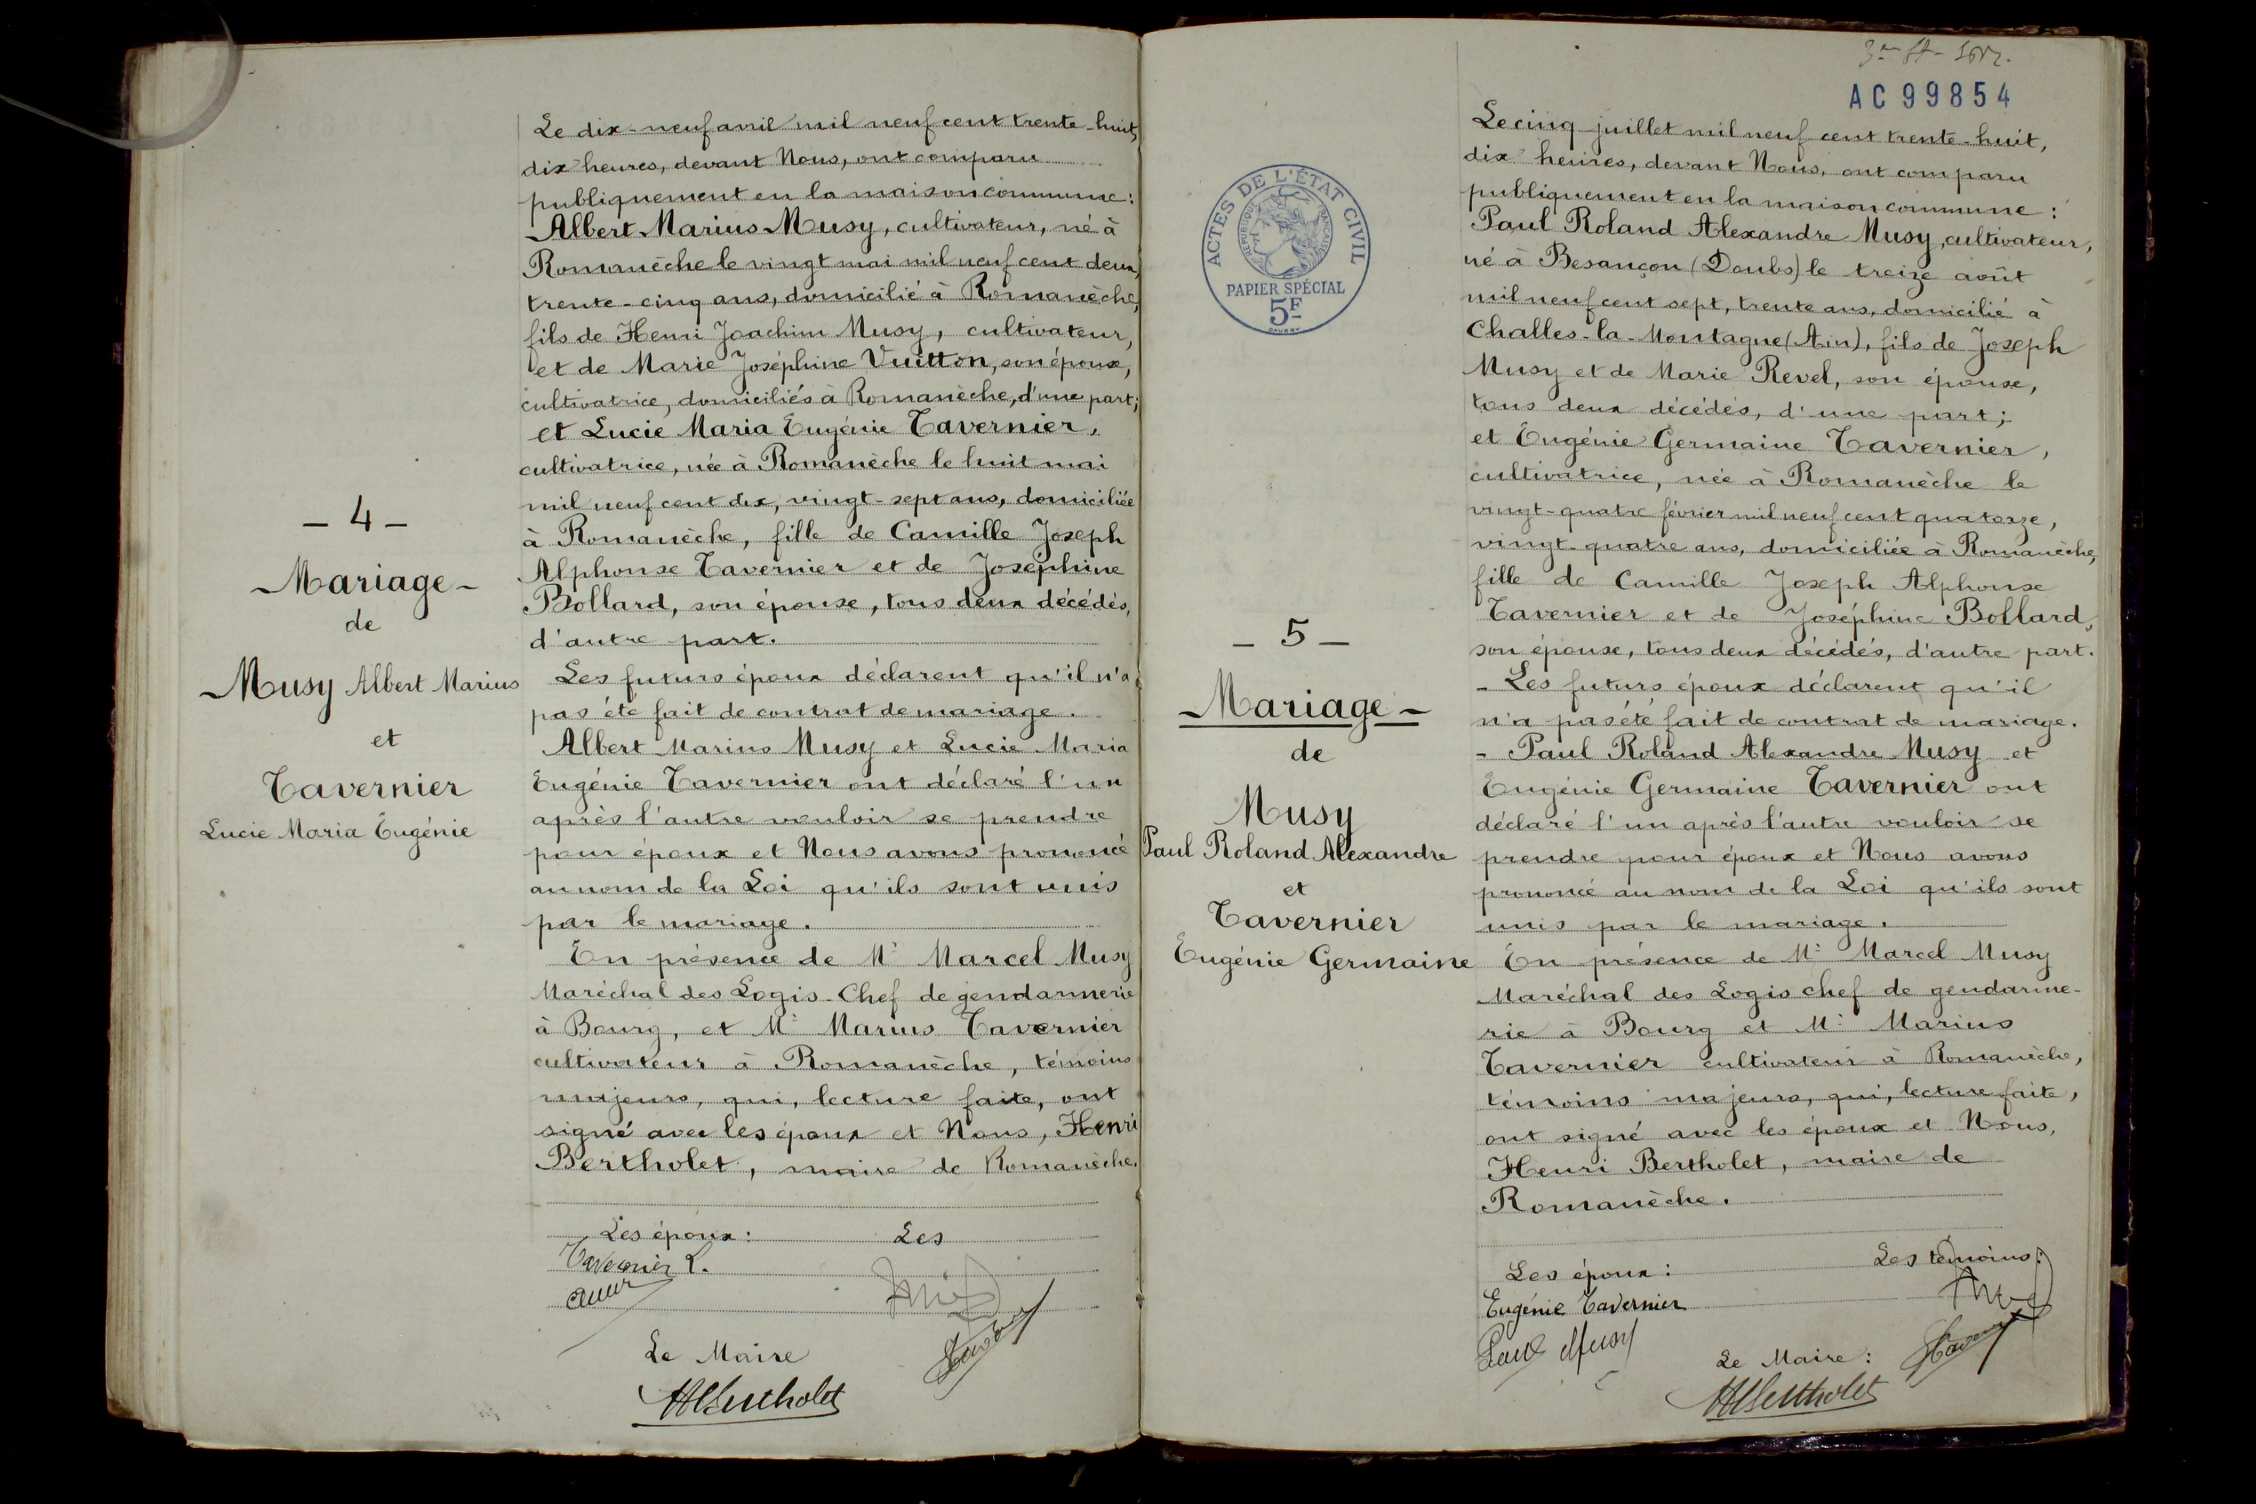 Le dix-neuf avril mil neuf cent trente-huit,
dix heures, devant Nous, ont comparu
publiquement en la maison commune :
Albert Marius Musy, cultivateur, né à
Romanèche le vingt mai mil neuf cent deux,
trente-cinq ans, domicilié à Romanèche,
fils de Henri Joachim Musy, cultivateur,
et de Marie Joséphine Vuitton, son épouse,
cultivatrice, domiciliés à Romanèche, d'une part;
et Lucie Maria Eugénie Tavernier,
cultivatrice, née à Romanèche le huit mai
mil neuf cent dix, vingt-sept ans, domiciliée
à Romanèche, fille de Camille Joseph
Alphonse Tavernier et de Joséphine
Bollard, son épouse, tous deux décédés,
d'autre part.
Les futurs époux déclarent qu'il n'a
pas été fait de contrat de mariage.
Albert Marius Musy et Lucie Maria
Eugénie Tavernier ont déclaré l'un
après l'autre vouloir se prendre
pour époux et Nous avons prononcé
au nom de la Loi qu'ils sont unis
par le mariage.
En présence de Mr Marcel Musy
Maréchal des Logis-Chef de gendarmerie
à Bourg, et Mr Marius Tavernier
cultivateur à Romanèche, témoins
majeurs, qui, lecture faite, ont
signé avec les époux et Nous, Henri
Bertholet, maire de Romanèche.
Les époux : Les
Tavernier L.
Le Maire
HBertholet
- 4 -
Mariage -
de
Musy Albert Marius
et
Tavernier
Lucie Maria Eugénie
AC 99854
ACTES DE L'ÉTAT CIVIL
RÉPUBLIQUE FRANÇAISE
PAPIER SPÉCIAL
5F
- 5 -
Mariage -
de
Musy
Paul Roland Alexandre
et
Tavernier
Eugénie Germaine
Le cinq juillet mil neuf cent trente-huit,
dix heures, devant Nous, ont comparu
publiquement en la maison commune :
Paul Roland Alexandre Musy, cultivateur,
né à Besançon (Doubs) le treize août
mil neuf cent sept, trente ans, domicilié à
Challes-la-Montagne (Ain), fils de Joseph
Musy et de Marie Revel, son épouse,
tous deux décédés, d'une part;
et Eugénie Germaine Tavernier,
cultivatrice, née à Romanèche le
vingt-quatre février mil neuf cent quatorze,
vingt-quatre ans, domiciliée à Romanèche,
fille de Camille Joseph Alphonse
Tavernier et de Joséphine Bollard,
son épouse, tous deux décédés, d'autre part.
- Les futurs époux déclarent qu'il
n'a pas été fait de contrat de mariage.
- Paul Roland Alexandre Musy et
Eugénie Germaine Tavernier ont
déclaré l'un après l'autre vouloir se
prendre pour époux et Nous avons
prononcé au nom de la Loi qu'ils sont
unis par le mariage.
En présence de Mr Marcel Musy
Maréchal des Logis chef de gendarme-
rie à Bourg et Mr Marius
Tavernier cultivateur à Romanèche,
témoins majeurs, qui, lecture faite,
ont signé avec les époux et Nous,
Henri Bertholet, maire de
Romanèche.
Les époux : Les témoins :
Eugénie Tavernier
Paul Musy
Le Maire :
HBertholet